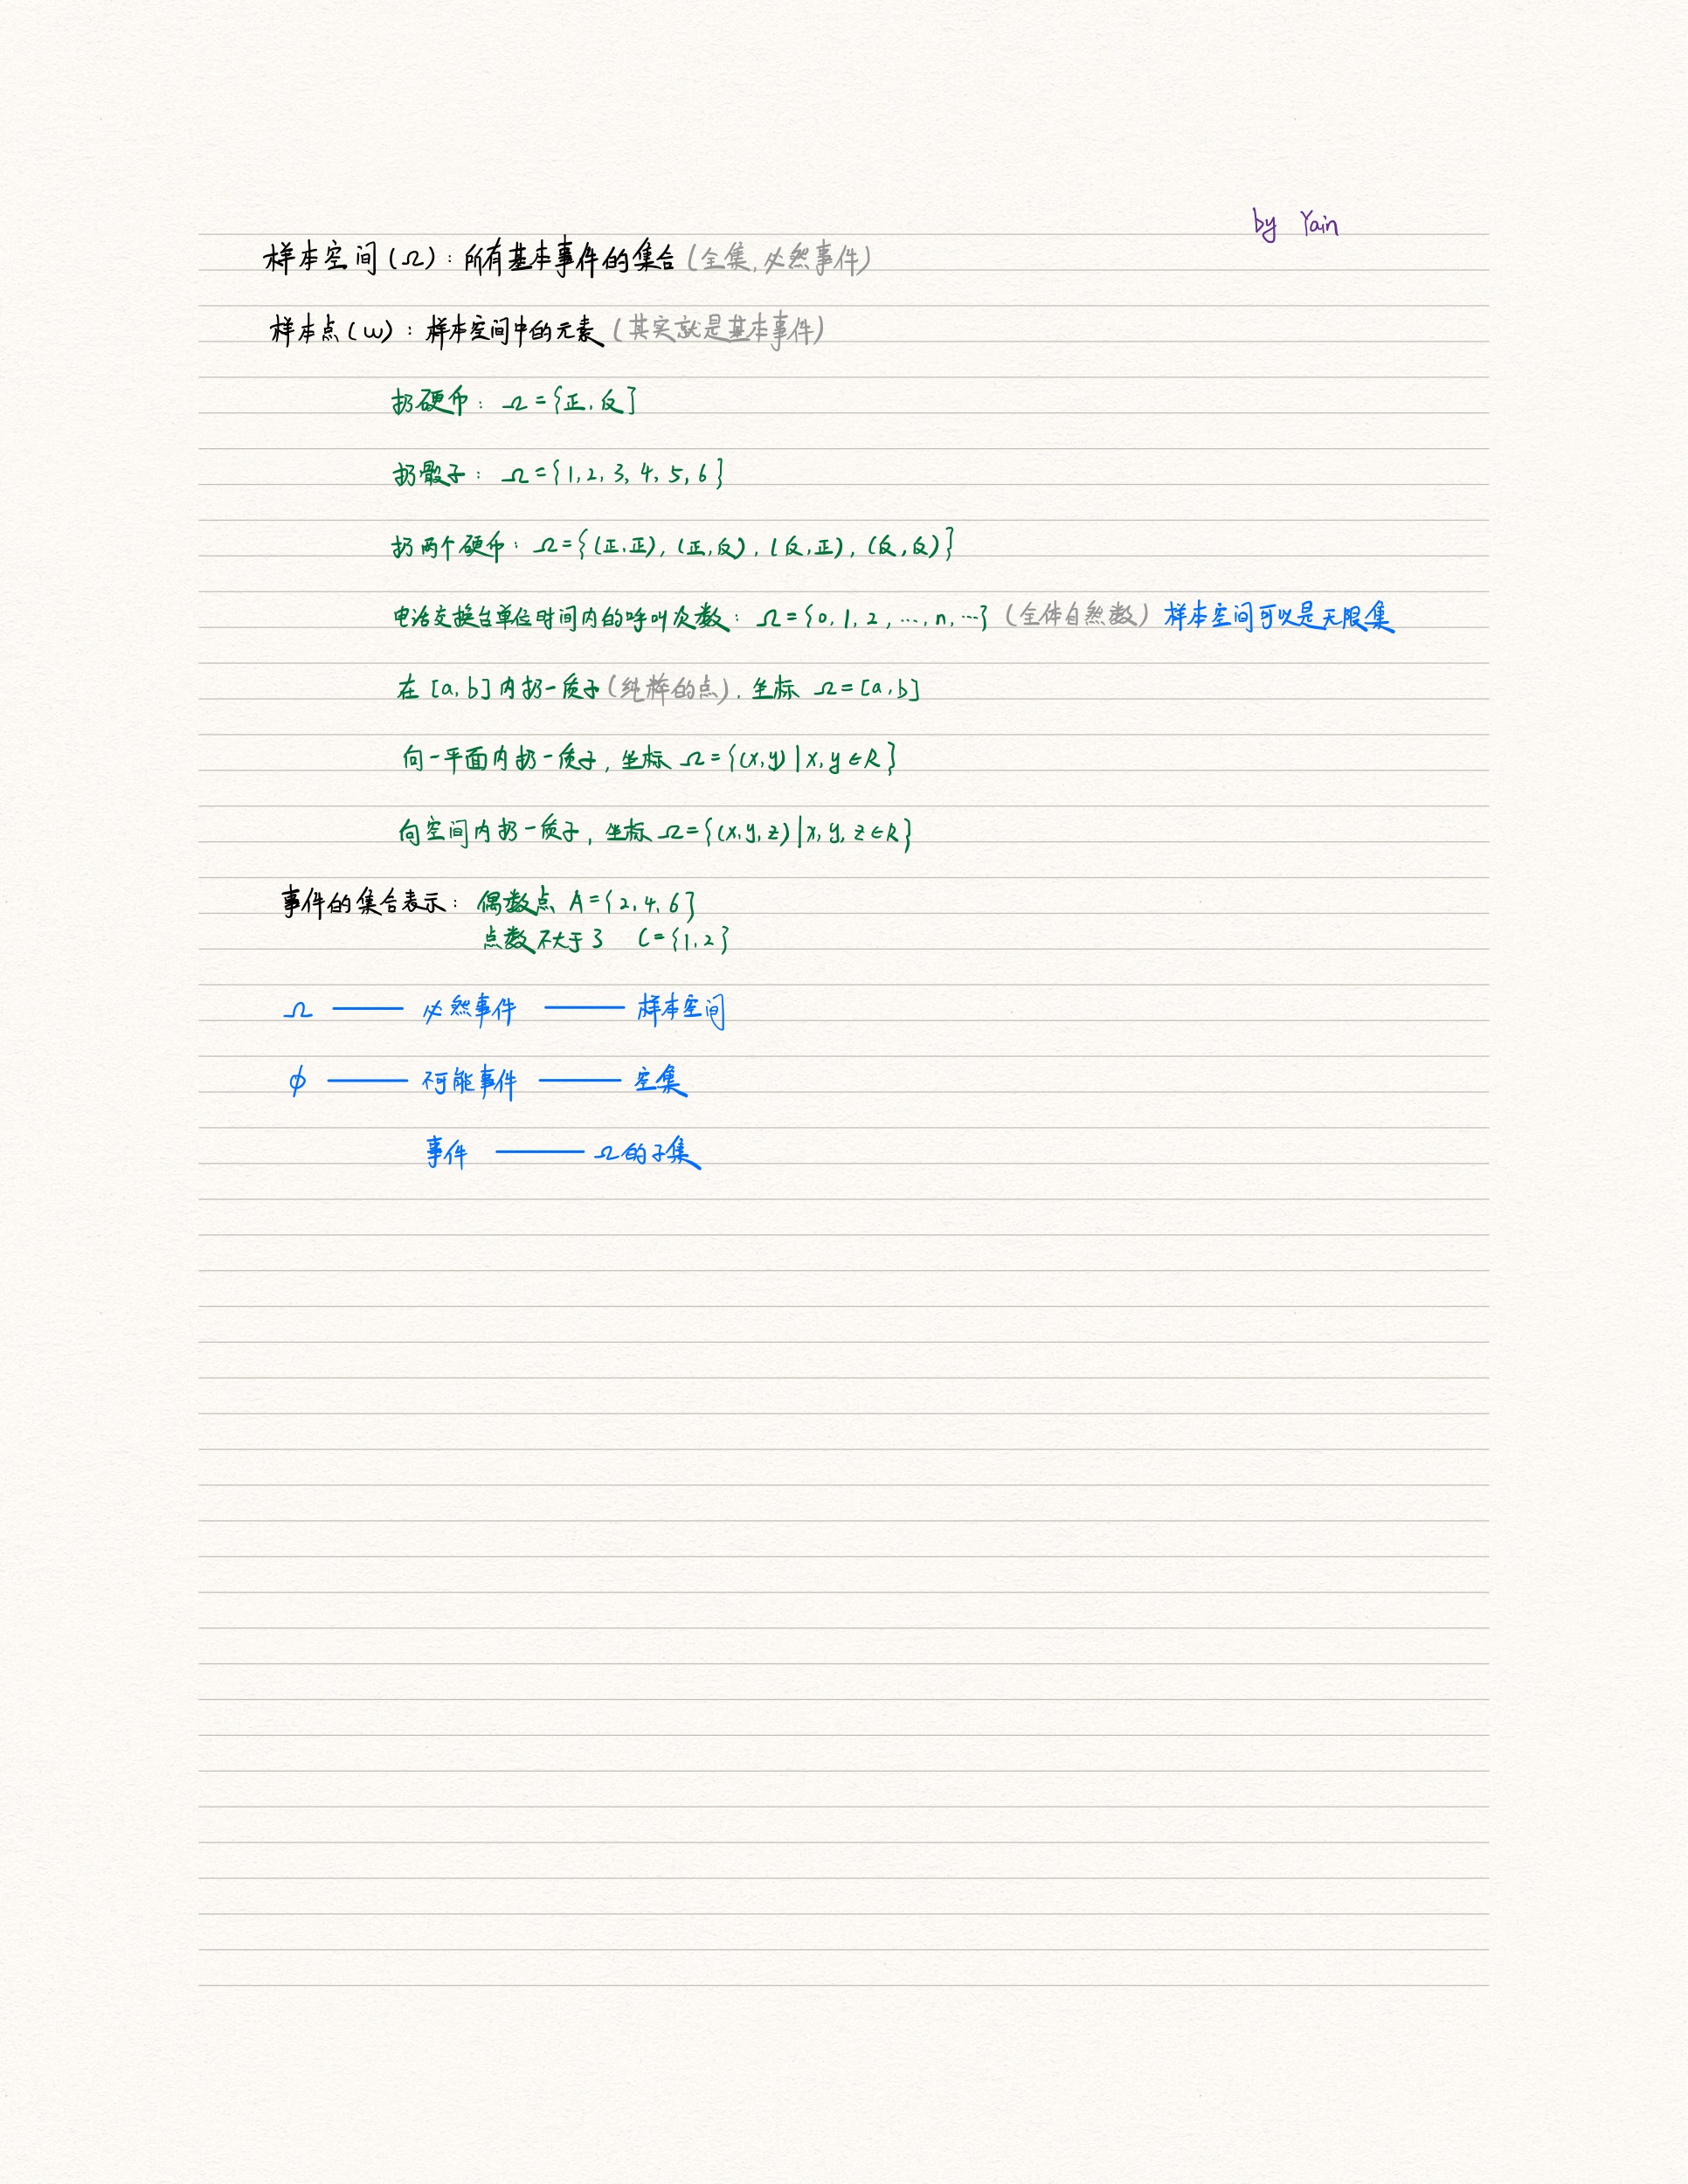 by Yain
样本空间(Ω): 所有基本事件的集合 (全集, 必然事件)
样本点(ω): 样本空间中的元素 (其实就是基本事件)
扔硬币: Ω={正, 反}
扔骰子: Ω={1, 2, 3, 4, 5, 6}
扔两个硬币: Ω={(正,正), (正,反), (反,正), (反,反)}
电话交换台单位时间内的呼叫次数: Ω={0, 1, 2, ..., n, ...} (全体自然数) 样本空间可以是无限集
在[a, b]内扔一质子(纯粹的点), 坐标 Ω=[a, b]
向一平面内扔一质子, 坐标 Ω={(x,y)|x, y∈R}
向空间内扔一质子, 坐标 Ω={(x,y,z)|x, y, z∈R}
事件的集合表示: 偶数点 A={2, 4, 6}
点数不大于3 C={1, 2}
Ω —— 必然事件 —— 样本空间
ϕ —— 不可能事件 —— 空集
事件 —— Ω的子集